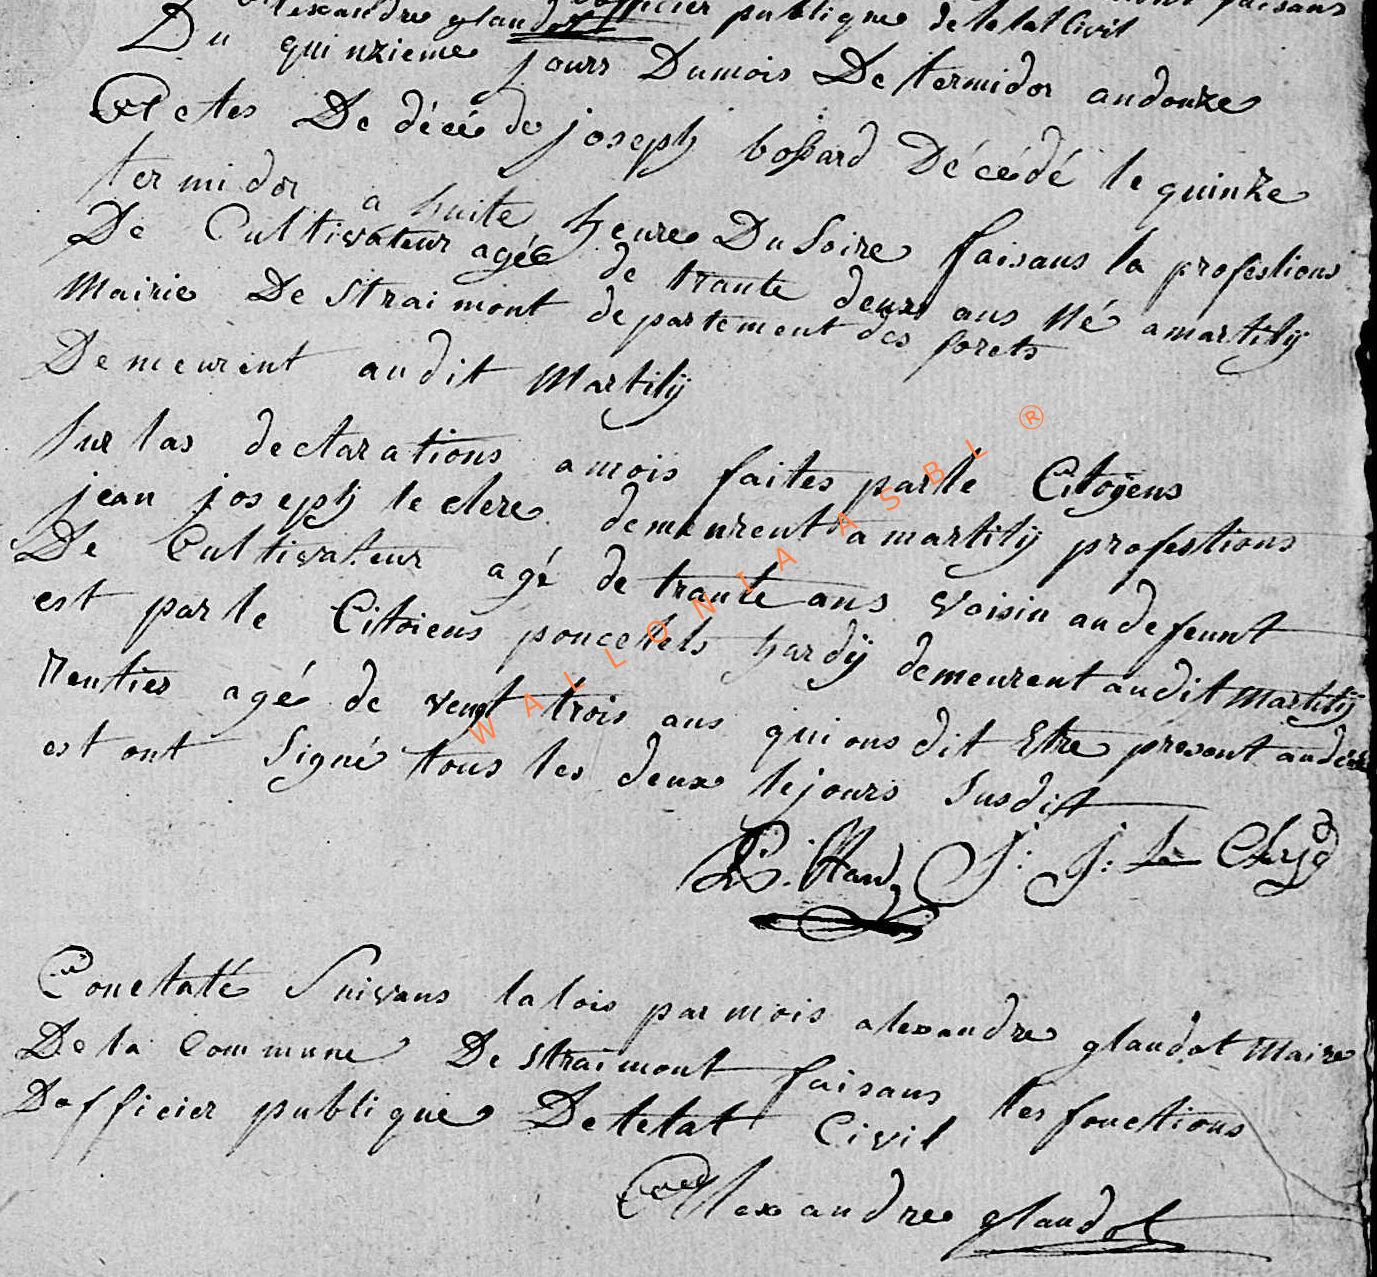 faisans
Alexandre glaudot officier publique de letat Civil
Du quinzieme jours Dumois De termidor andouze
Actes De décé de joseph bossard Décédé le quinze
termidor a huite heure Du Soire faisans la profestions
De Cultivateur agée de trante deux ans né amartilÿ
Mairie De Straimont departement des forets
Demeurent audit Martilÿ
Sur las declarations amois faites parle Citoÿens
jean joseph leclere demeurent amartilÿ profestions
De Cultivateur agé de trante ans Voisin audefeunt
est parle Citoiens poncelets hardÿ demeurent audit Martilÿ
Rentier agé de vengt trois ans qui ons dit Etre present audecé
est ont Signé tous les deux lejours Susdit
P. Hardy J: J: Le Clerc
Conctaté Suivans lalois par mois alexandre glaudot Maire
De la Commune De Straimont faisans les fonctions
Dofficier publique De letat Civil
Alexandre glaudot
WALLONIA ASBL ®